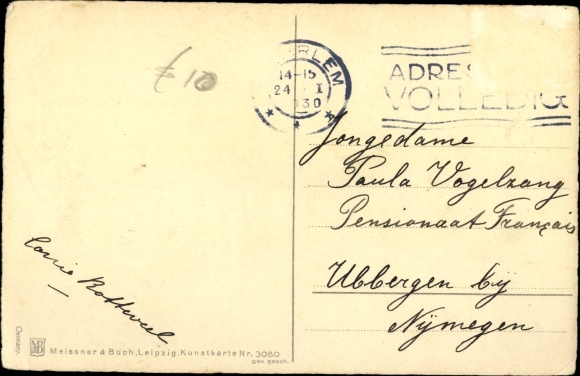 € 10
RLEM
14-15
24 I
1930
ADRES
VOLLEDIG
Jongedame
Paula Vogelzang
Pensionaat Français
Ubbergen bij
Nijmegen
Corrie Botteveel
Germany.
MB
Meissner & Buch, Leipzig. Kunstkarte Nr. 3080
ges. gesch.